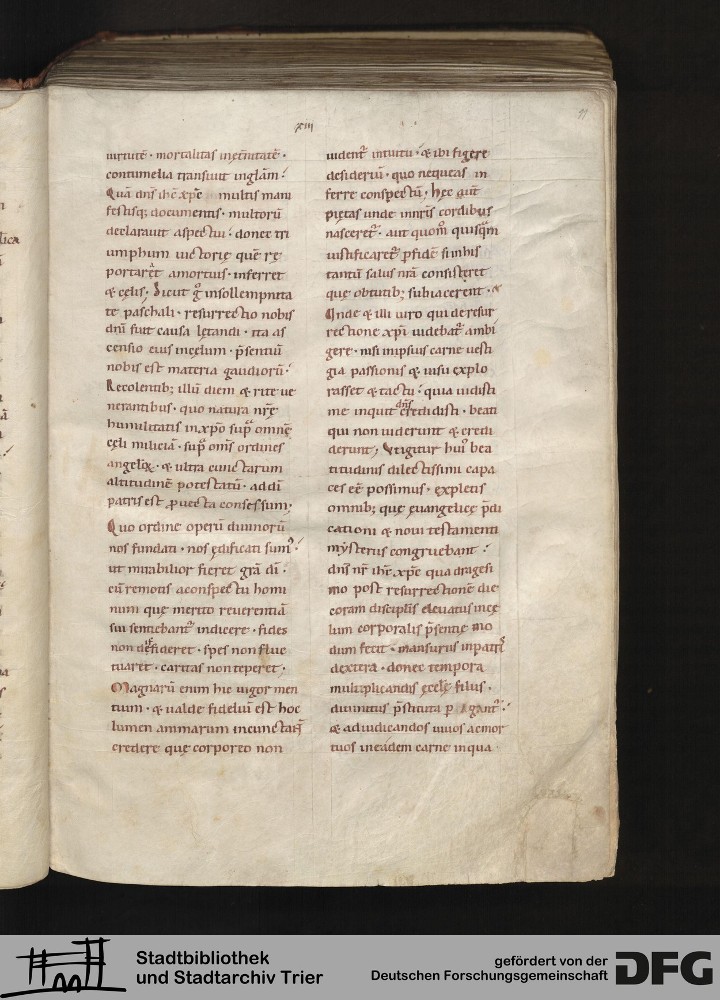 xiii
uirtutē · mortalitas inęt̄nitatē ·
contumelia transiuit inglām ·
Quā dn̄s ihc̄ xp̄c multis mani
festisq; documentis · multorū
declarauit aspectui · donec tri
umphum uictorię quē re
portarat amortuis · inferret
& cęlis · Sicut g̊ insollempnita
te paschali · resurrectio nobis
dn̄i fuit causa lętandi · ita as
censio eius incęlum · p̄sentiū
nobis est materia gaudiorū ·
Recolentib; illū diem & rite ue
nerantibus · quo natura nr̄ę
humilitatis in xp̄o supͣ omnē
cęli miliciā · supͣ om̄s ordines
angelic̨ · & ultra cunctarum
altitudinē potestatū · ad dī
patris est ꝓuecta consessum ·
Quo ordine operū diuinorū
nos fundati · nos ędificati sumꝰ ·
ut mirabilior fieret grā dī ·
cū remotis aconspectu homi
num quę merito reuerentiā
sui sentiebantᷣ indicere · fides
non desideret · spes non fluc
tuaret · caritas non teperet ·
Magnarū enim hic uigor men
tium · & ualde fideliū est hoc
lumen animarum incunctant̄
credere quę corporeo non
uidentᷣ intuitu · & ibi figere
desideriū · quo nequeas in
ferre conspectū · hęc aūt
pietas unde inn̄ris cordibus
nasceretᷣ · aut quom̊ quisqͣm
iustificaretᷣ ꝑ fidē si in his
tantū salus nr̄a consisteret
quę obtutib; subiacerent · &
Unde & illi uiro qui de resur
rectione xp̄i uidebatᷣ ambi
gere · nisi inipsius carne uesti
gia passionis & uisu explo
rasset & tactu · quia uidisti
me inquit dn̄s credidisti · beati
qui non uiderunt & credi
derunt; Vt igitur huiꝰ bea
titudinis dilectissimi capa
ces eē possimus · expletis
omnib; quę euangelicę p̄di
cationi & noui testamenti
mẏsteriis congruebant ·
dn̄s nr̄ ihc̄ xp̄c quadragesi
mo post resurrectionē die
coram discipl̄is eleuatus incę
lum corporalis p̄sentię mo
dum fecit · mansurus inpatris
dextera · donec tempora
multiplicandis ęcclę filiis ·
diuinitus p̄stituta peragantᷣ ·
& adiudicandos uiuos & mor
tuos ineadem carne inqua
Stadtbibliothek
und Stadtarchiv Trier
gefördert von der
Deutschen Forschungsgemeinschaft
DFG